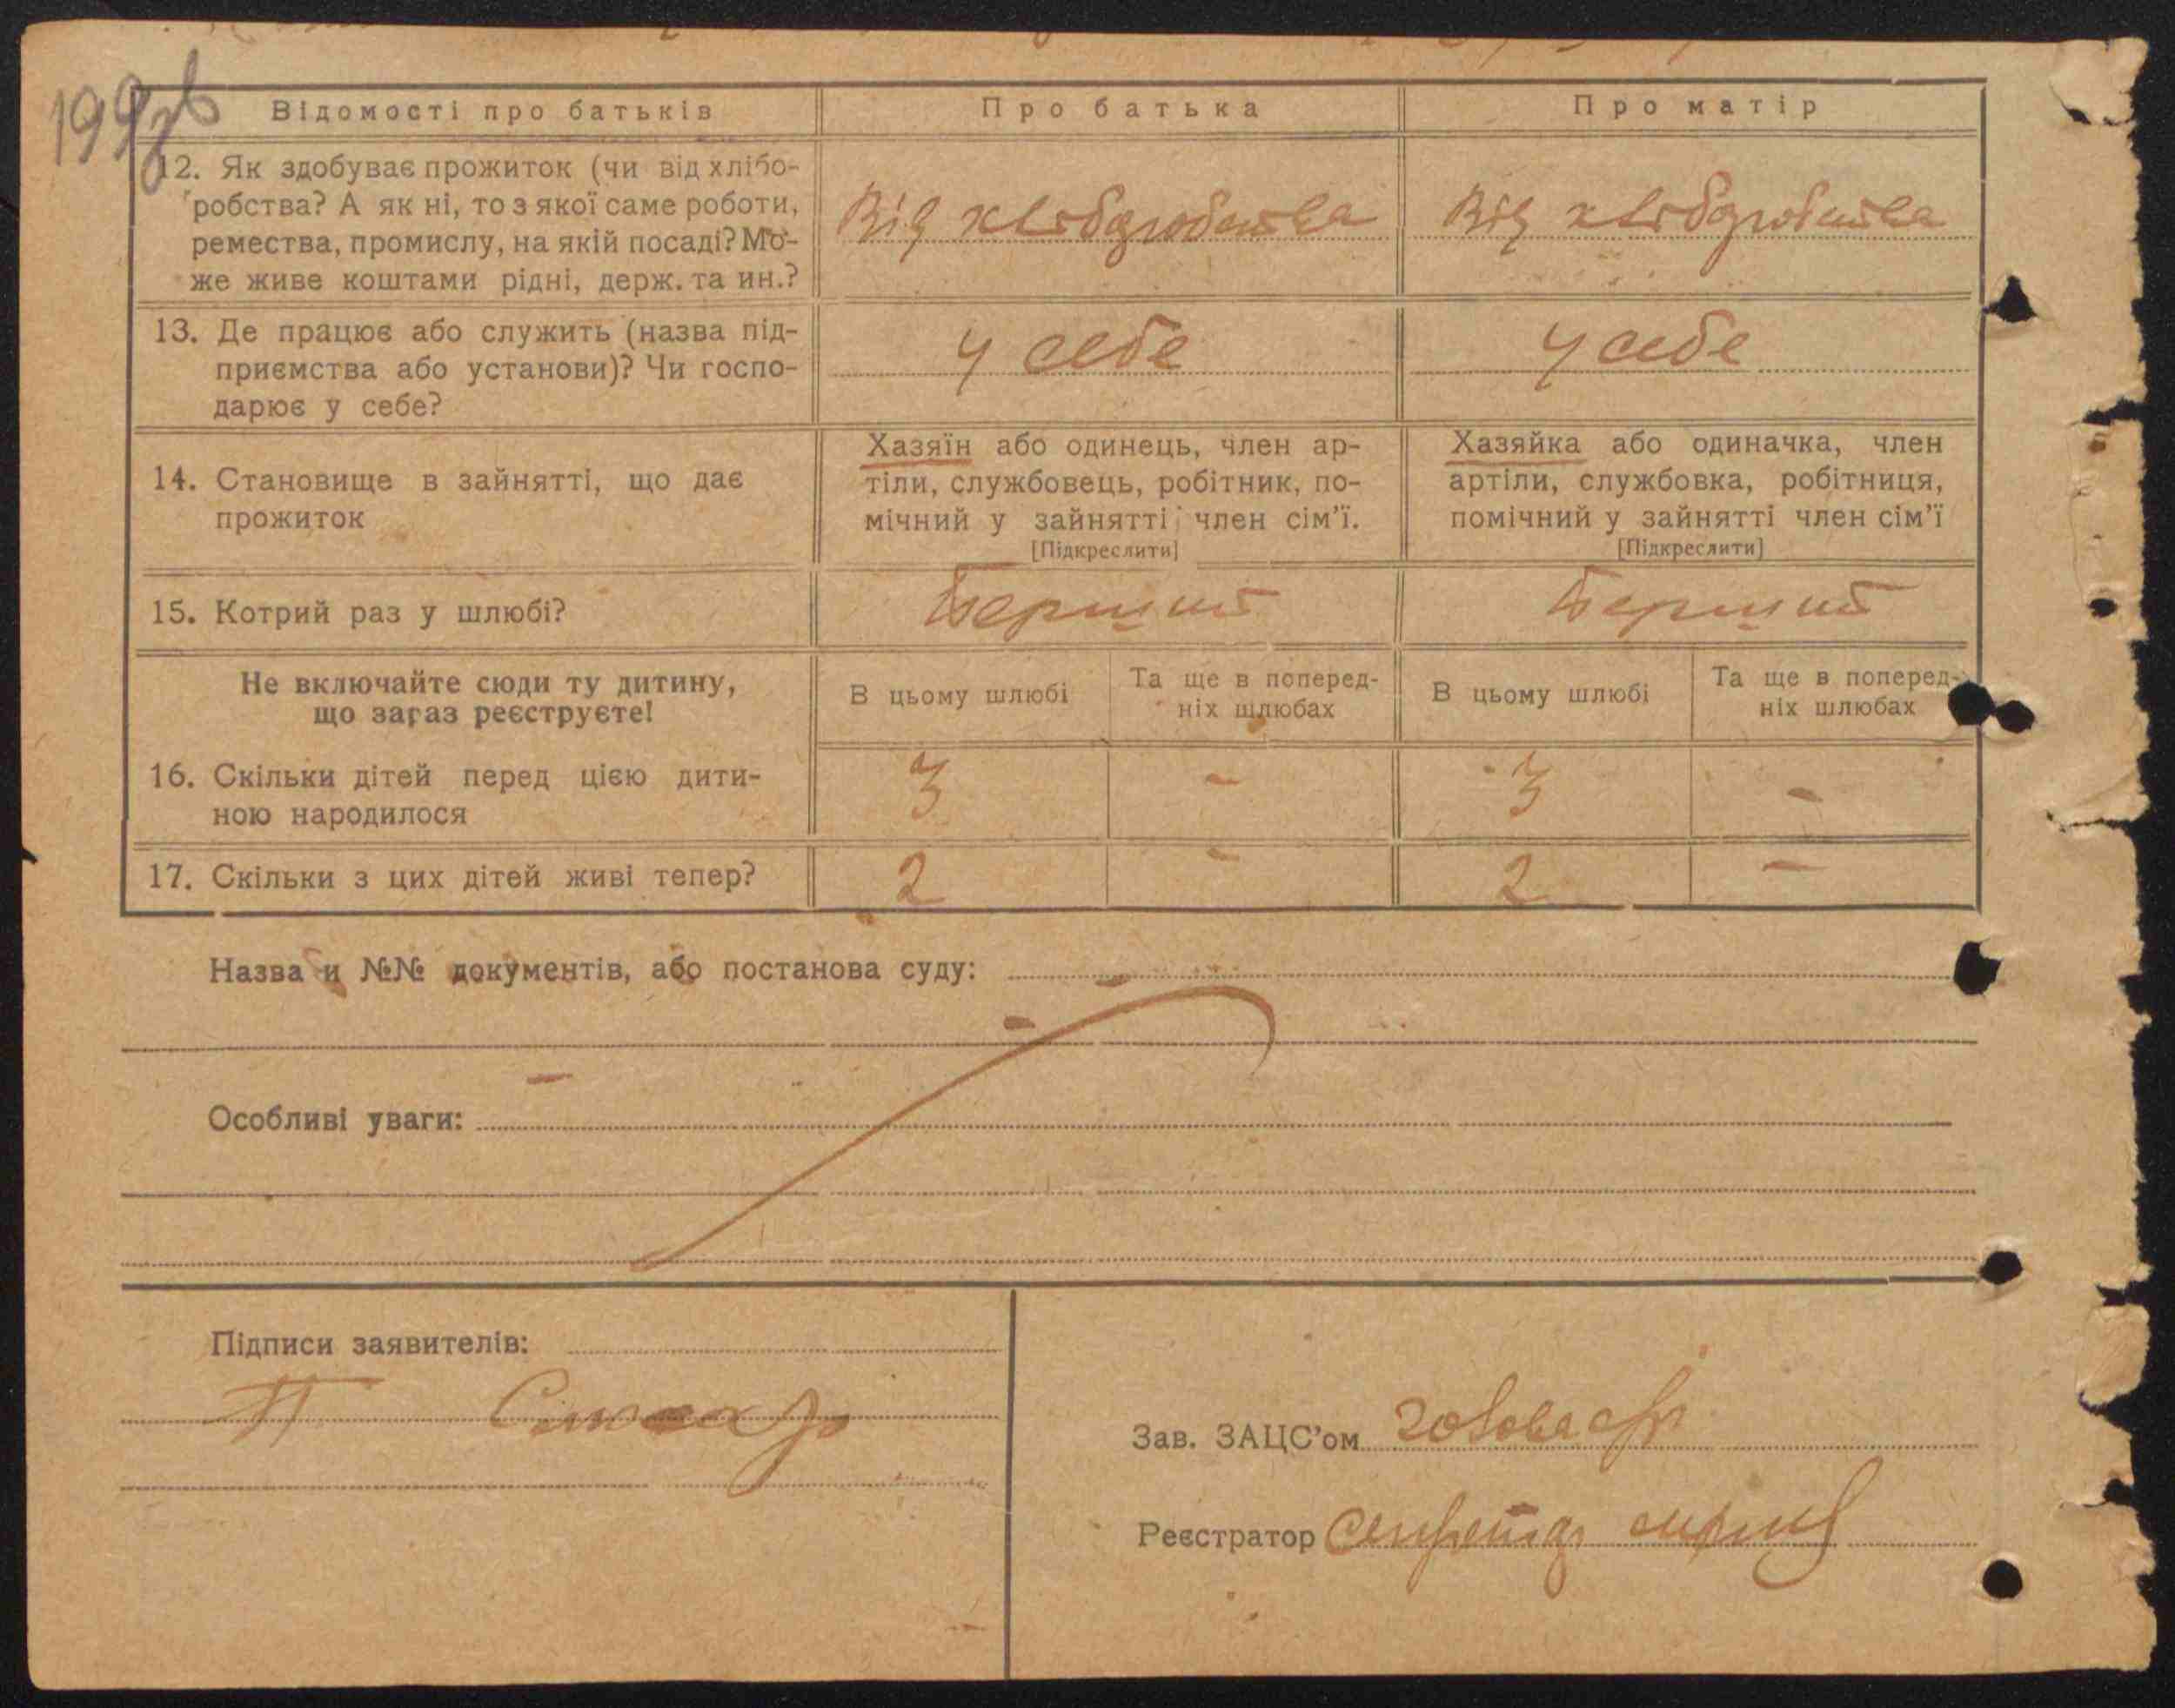 199зв
Відомості про батьків
Про батька
Про матір
12. Як здобуває прожиток (чи від хлібо-
робства? А як ні, то з якої саме роботи,
ремества, промислу, на якій посаді? Мо-
же живе коштами рідні, держ. та ин.?
Від хліборобства
Від хліборобства
13. Де працює або служить (назва під-
приємства або установи)? Чи госпо-
дарює у себе?
У себе
У себе
14. Становище в зайнятті, що дає
прожиток
Хазяїн або одинець, член ар-
тіли, службовець, робітник, по-
мічний у зайнятті член сім'ї.
[Підкреслити]
Хазяйка або одиначка, член
артіли, службовка, робітниця,
помічний у зайнятті член сім'ї
[Підкреслити]
15. Котрий раз у шлюбі?
Перший
Перший
Не включайте сюди ту дитину,
що зараз реєструєте!
В цьому шлюбі
Та ще в поперед-
ніх шлюбах
В цьому шлюбі
Та ще в поперед-
ніх шлюбах
16. Скільки дітей перед цією дити-
ною народилося
3 - 3 -
17. Скільки з цих дітей живі тепер?
2 - 2 -
Назва и №№ документів, або постанова суду:
Особливі уваги:
Підписи заявителів:
П
Зав. ЗАЦС'ом Голова с/р
Реєстратор Секретар